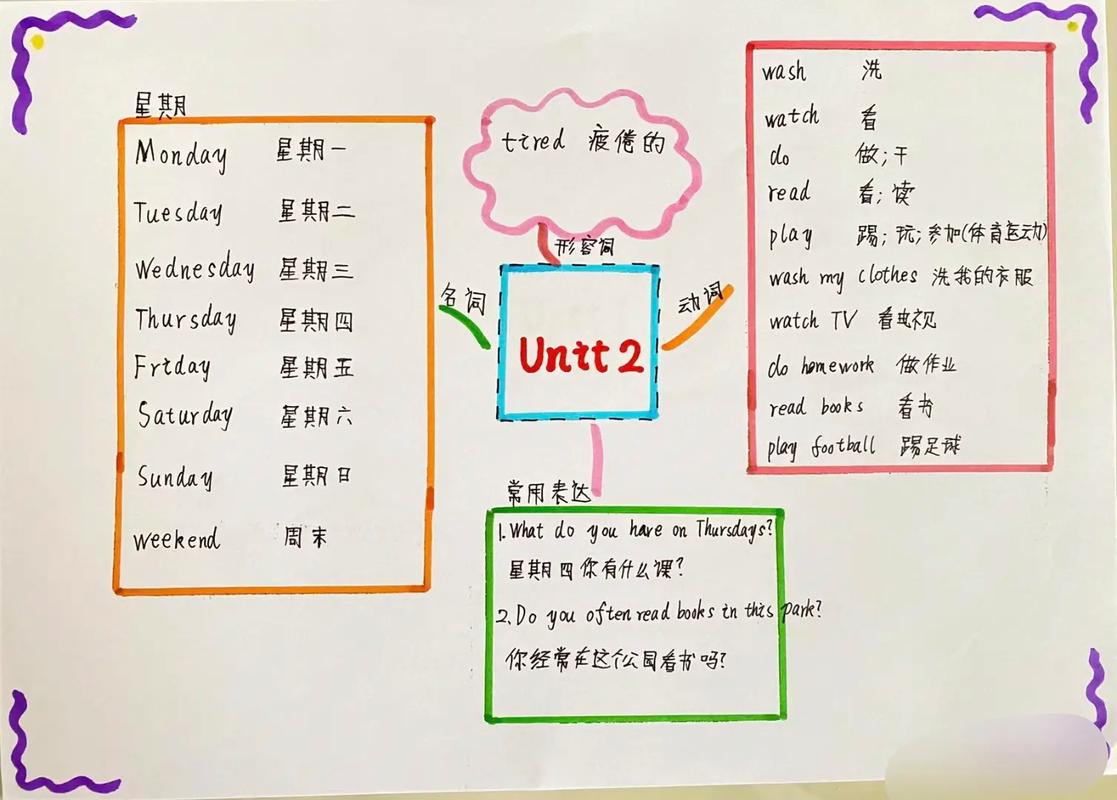 星期
Monday 星期一
Tuesday 星期二
Wednesday 星期三
Thursday 星期四
Friday 星期五
Saturday 星期六
Sunday 星期日
weekend 周末
tired 疲倦的
形容词
名词
动词
Unit 2
wash 洗
watch 看
do 做;干
read 看;读
play 踢;玩;参加(体育运动)
wash my clothes 洗我的衣服
watch TV 看电视
do homework 做作业
read books 看书
play football 踢足球
常用表达
1.What do you have on Thursdays?
星期四你有什么课?
2.Do you often read books in this park?
你经常在这个公园看书吗?